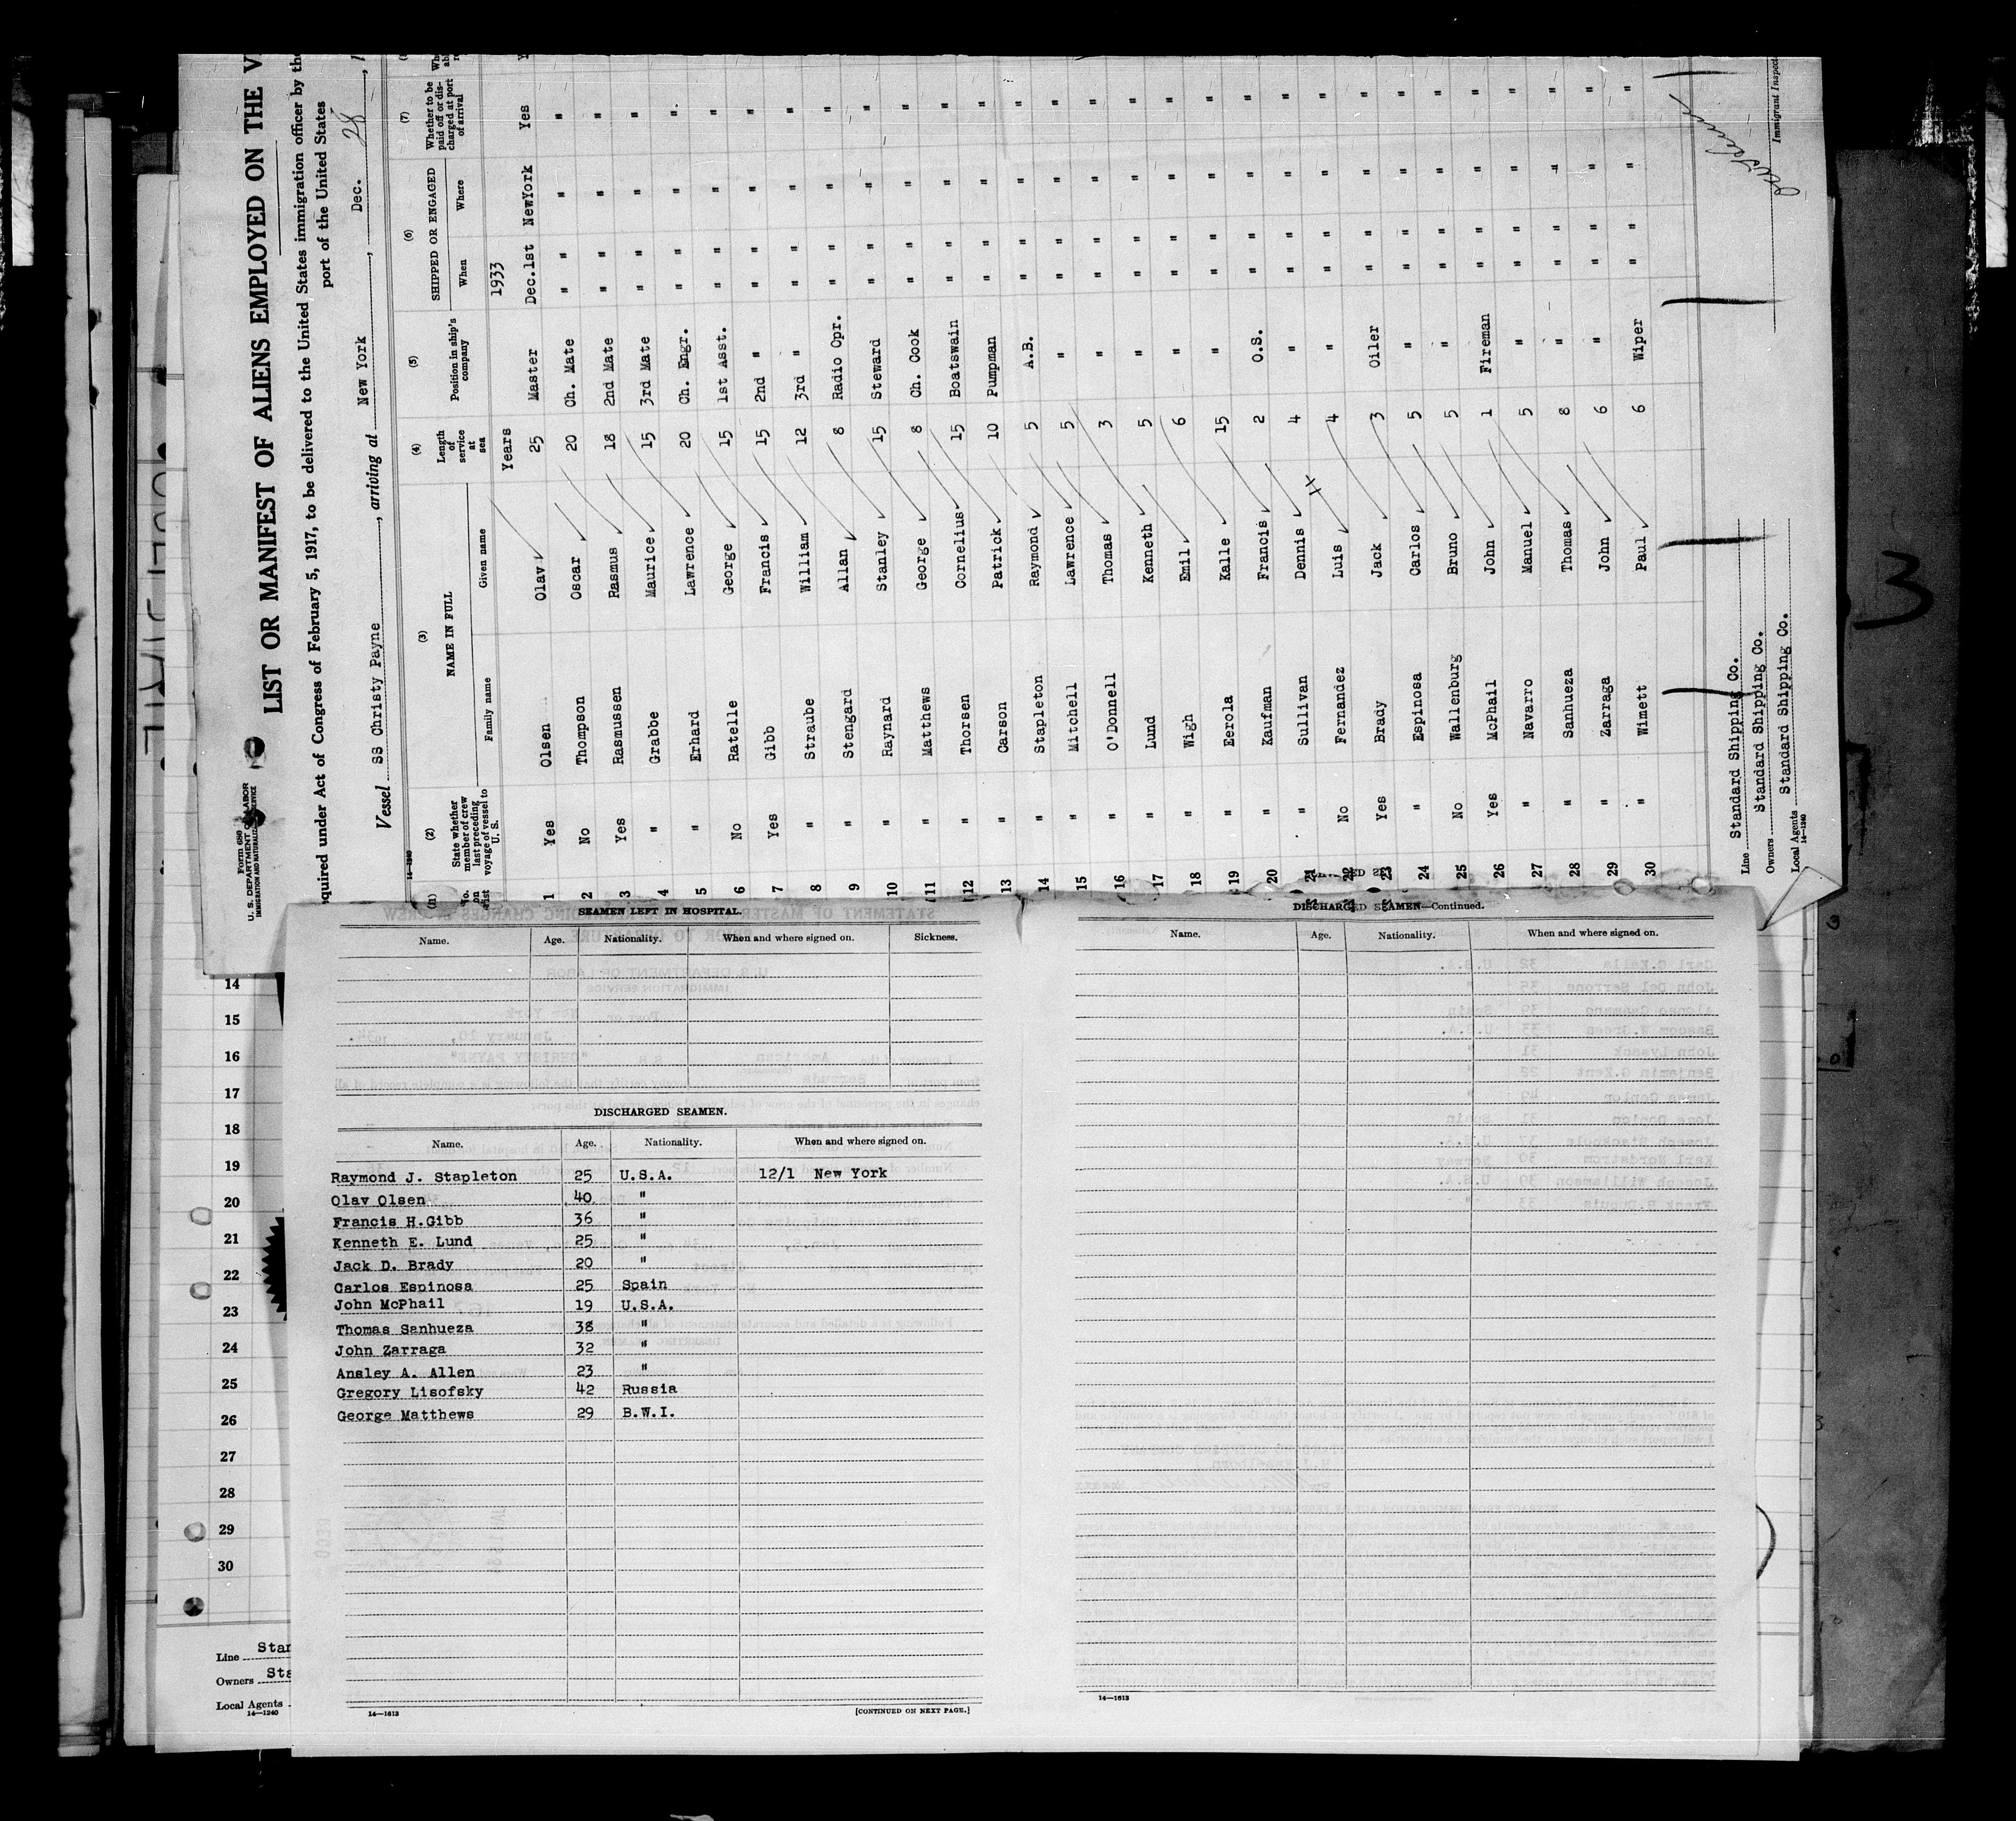 Form 680
U. S. DEPARTMENT OF LABOR
IMMIGRATION AND NATURALIZATION SERVICE
LIST OR MANIFEST OF ALIENS EMPLOYED ON THE V
equired under Act of Congress of February 5, 1917, to be delivered to the United States immigration officer by the
port of the United States
Vessel SS Christy Payne, arriving at New York, Dec. 28, 1
(1) (2) (3) (4) (5) (6) (7)
No. on list State whether member of crew last preceding voyage of vessel to U. S. NAME IN FULL Family name Given name Length of service at sea Position in ship's company SHIPPED OR ENGAGED When Where Whether to be paid off or discharged at port of arrival
Years 1933
1 Yes Olsen Olav 25 Master Dec.1st NewYork Yes
2 No Thompson Oscar 20 Ch. Mate " " " "
3 Yes Rasmussen Rasmus 18 2nd Mate " " " "
4 " Grabbe Maurice 15 3rd Mate " " " "
5 " Erhard Lawrence 20 Ch. Engr. " " " "
6 No Ratelle George 15 1st Asst. " " " "
7 Yes Gibb Francis 15 2nd " " " " "
8 " Straube William 12 3rd " " " " "
9 " Stengard Allan 8 Radio Opr. " " " "
10 " Raynard Stanley 15 Steward " " " "
11 " Matthews George 8 Ch. Cook " " " "
12 " Thorsen Cornelius 15 Boatswain " " " "
13 " Carson Patrick 10 Pumpman " " " "
14 " Stapleton Raymond 5 A.B. " " " "
15 " Mitchell Lawrence 5 " " " " "
16 " O'Donnell Thomas 3 " " " " "
17 " Lund Kenneth 5 " " " " "
18 " Wigh Emil 6 " " " " "
19 " Eerola Kalle 15 " " " " "
20 " Kaufman Francis 2 O.S. " " " "
21 " Sullivan Dennis 4 " " " " "
22 No Fernandez Luis 4 " " " " "
23 Yes Brady Jack 3 Oiler " " " "
24 " Espinosa Carlos 5 " " " " "
25 No Wallenburg Bruno 5 " " " " "
26 Yes McPhail John 1 Fireman " " " "
27 " Navarro Manuel 5 " " " " "
28 " Sanhueza Thomas 8 " " " " "
29 " Zarraga John 6 " " " " "
30 " Wimett Paul 6 Wiper " " " "
Line Standard Shipping Co.
Owners Standard Shipping Co.
Local Agents Standard Shipping Co.
14—1240
Immigrant Inspect
SEAMEN LEFT IN HOSPITAL.
Name. Age. Nationality. When and where signed on. Sickness.
DISCHARGED SEAMEN.
Name. Age. Nationality. When and where signed on.
Raymond J. Stapleton 25 U.S.A. 12/1 New York
Olav Olsen 40 "
Francis H.Gibb 36 "
Kenneth E. Lund 25 "
Jack D. Brady 20 "
Carlos Espinosa 25 Spain
John McPhail 19 U.S.A.
Thomas Sanhueza 38 "
John Zarraga 32 "
Ansley A. Allen 23 "
Gregory Lisofsky 42 Russia
George Matthews 29 B.W.I.
14—1613
[CONTINUED ON NEXT PAGE.]
DISCHARGED SEAMEN—Continued.
Name. Age. Nationality. When and where signed on.
14—1613
14
15
16
17
18
19
20
21
22
23
24
25
26
27
28
29
30
Line Stan
Owners Sta
Local Agents
14—1240
3